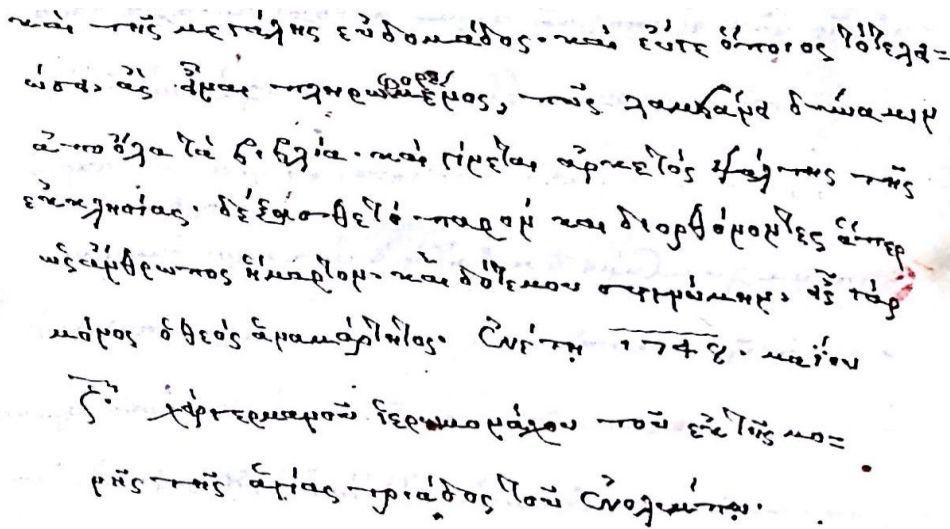 καὶ τῆς μεγάλης εὐδομάδος· καὶ
ἂς ἦναι πληροφορεμένος, πῶς λαμβάνει δύναμιν
ἀπὸ ὅλα τὰ βιβλία· καὶ γίνεται ἀρκετὸς ψάλτης τῆς
ἐκκλησίας· δέξασθε τὸ παρὸν καὶ διορθόνοντες ἅπερ
ὡς ἄνθρωπος ἥμαρτον· καὶ δότε μου συγγνώμην, εἷς γὰρ
μόνος ὁ θεὸς ἀναμάρτητος. Ἐν ἔτη 1748· μαΐου
ζ· γερμανοῦ ἱερομονάχου τοῦ ἐκ τῆς μο=
νῆς τῆς ἁγίας τριάδος τοῦ ἐν ὀλύμπῳ.